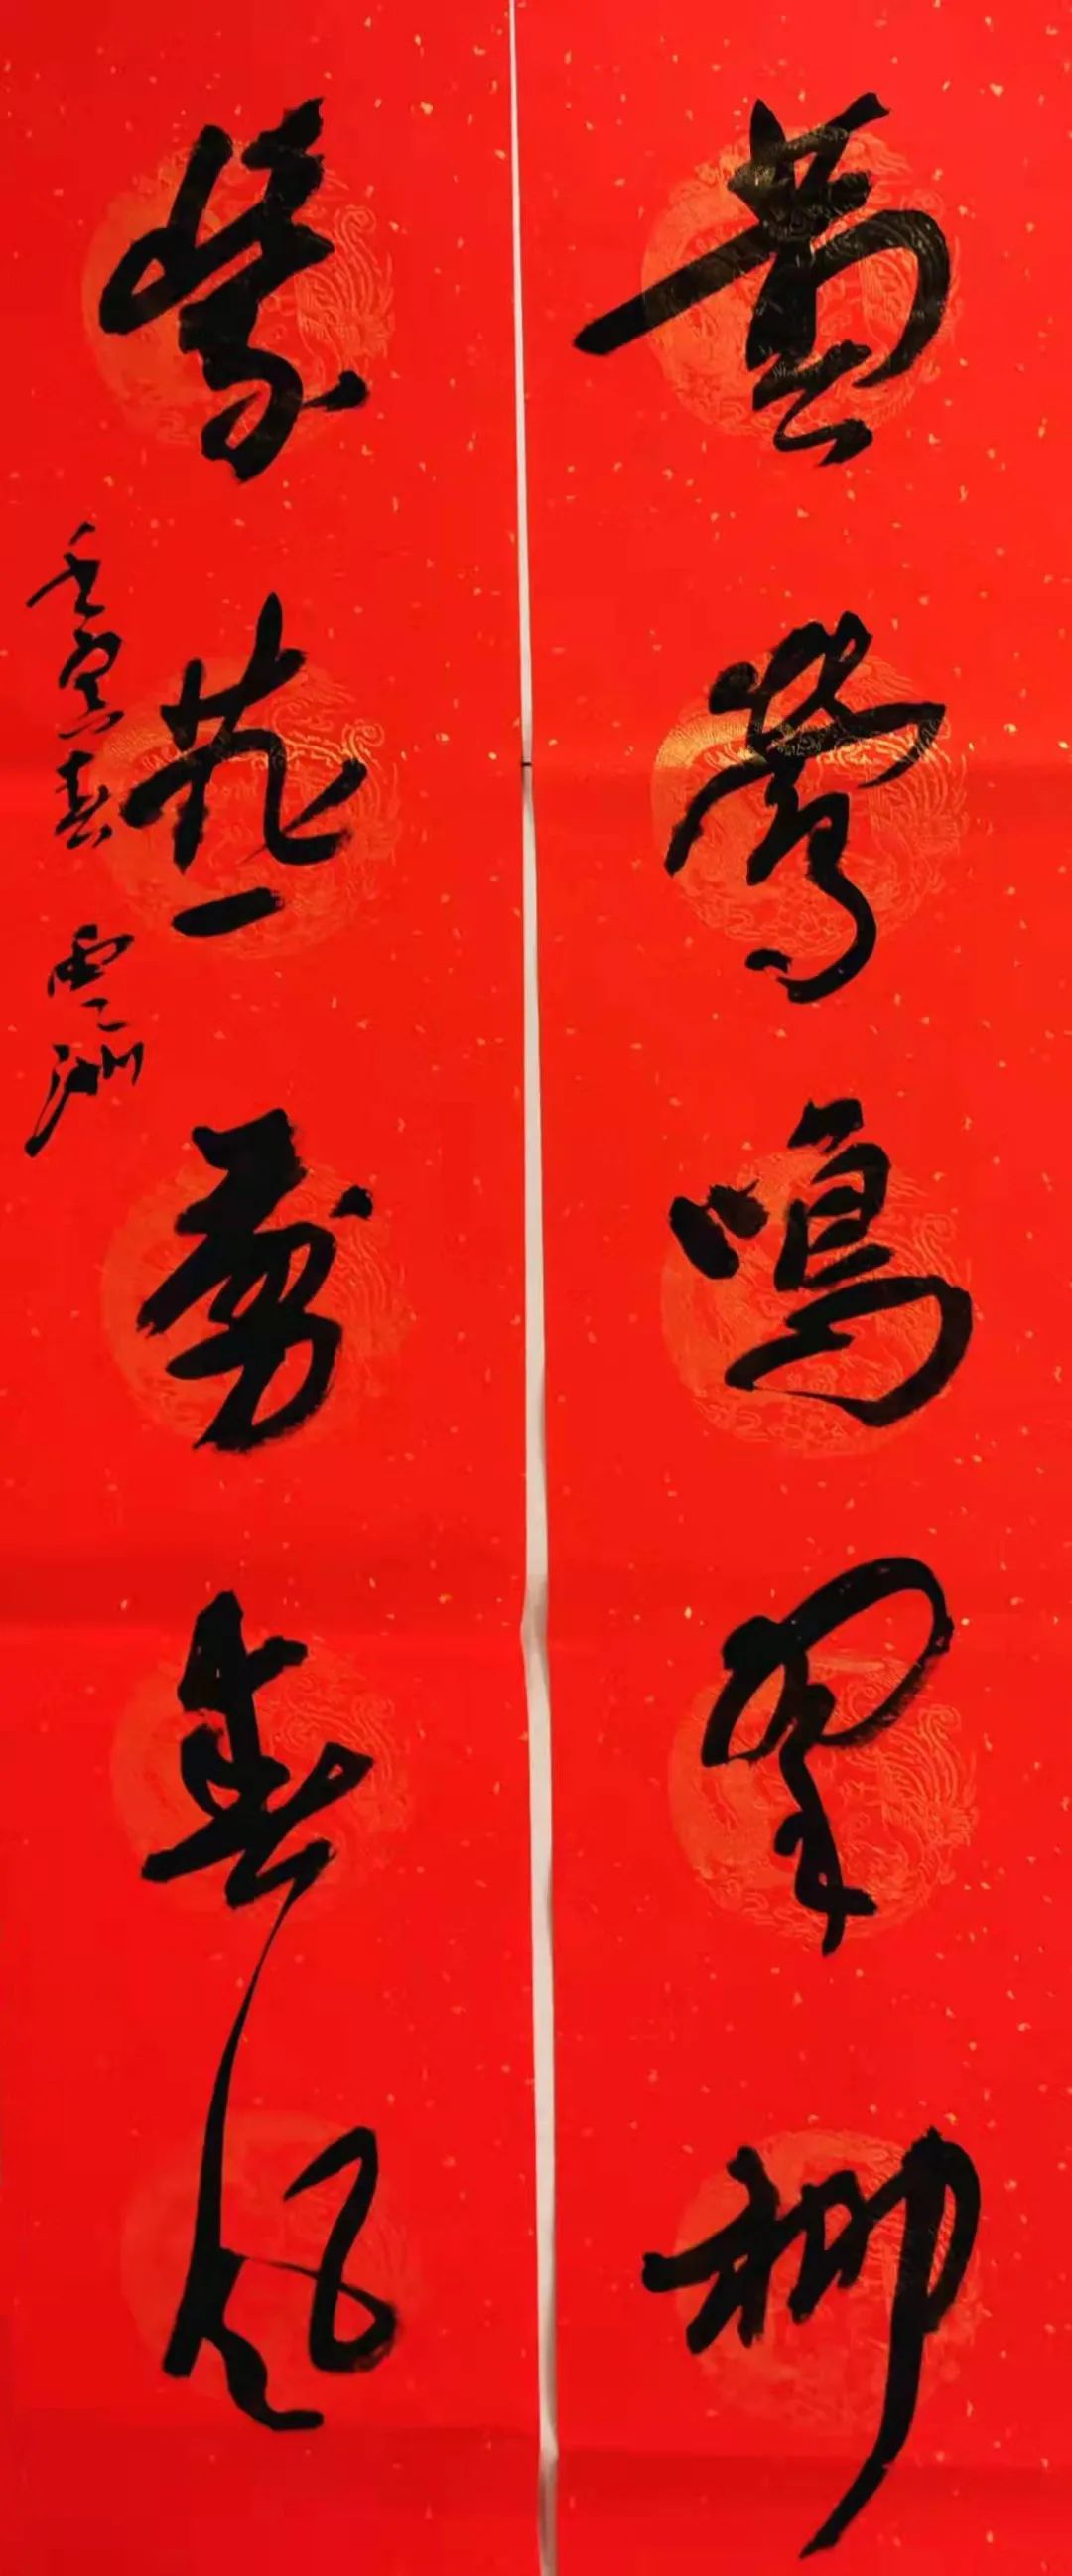 黄莺鸣翠柳
紫燕剪春风
壬寅春 云洲